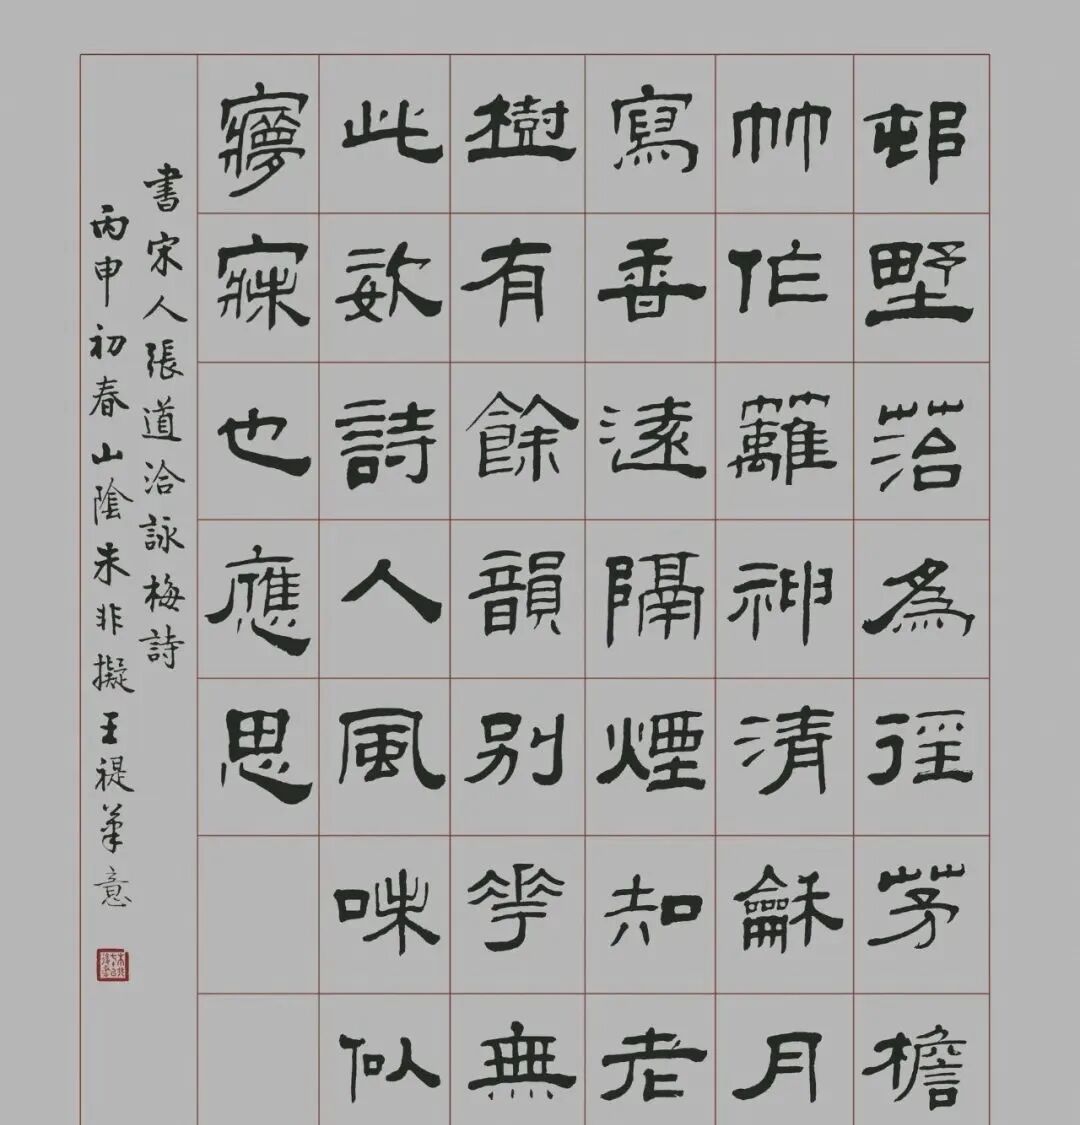 邨墅菭為徑茅檐
竹作籬神清龢月
寫香遠隔煙知老
樹有餘韻別華無
此姿詩人風味似
㝱寐也應思
書宋人張道洽詠梅詩
丙申初春山陰朱非擬王禔筆意